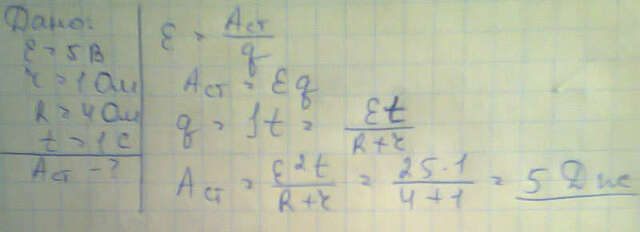 Дано:
ε = 5 В
r = 1 Ом
R = 4 Ом
t = 1 с
Aст - ?
ε = Aст / q
Aст = εq
q = It = εt / R+r
Aст = ε²t / R+r = 25·1 / 4+1 = 5 Дж